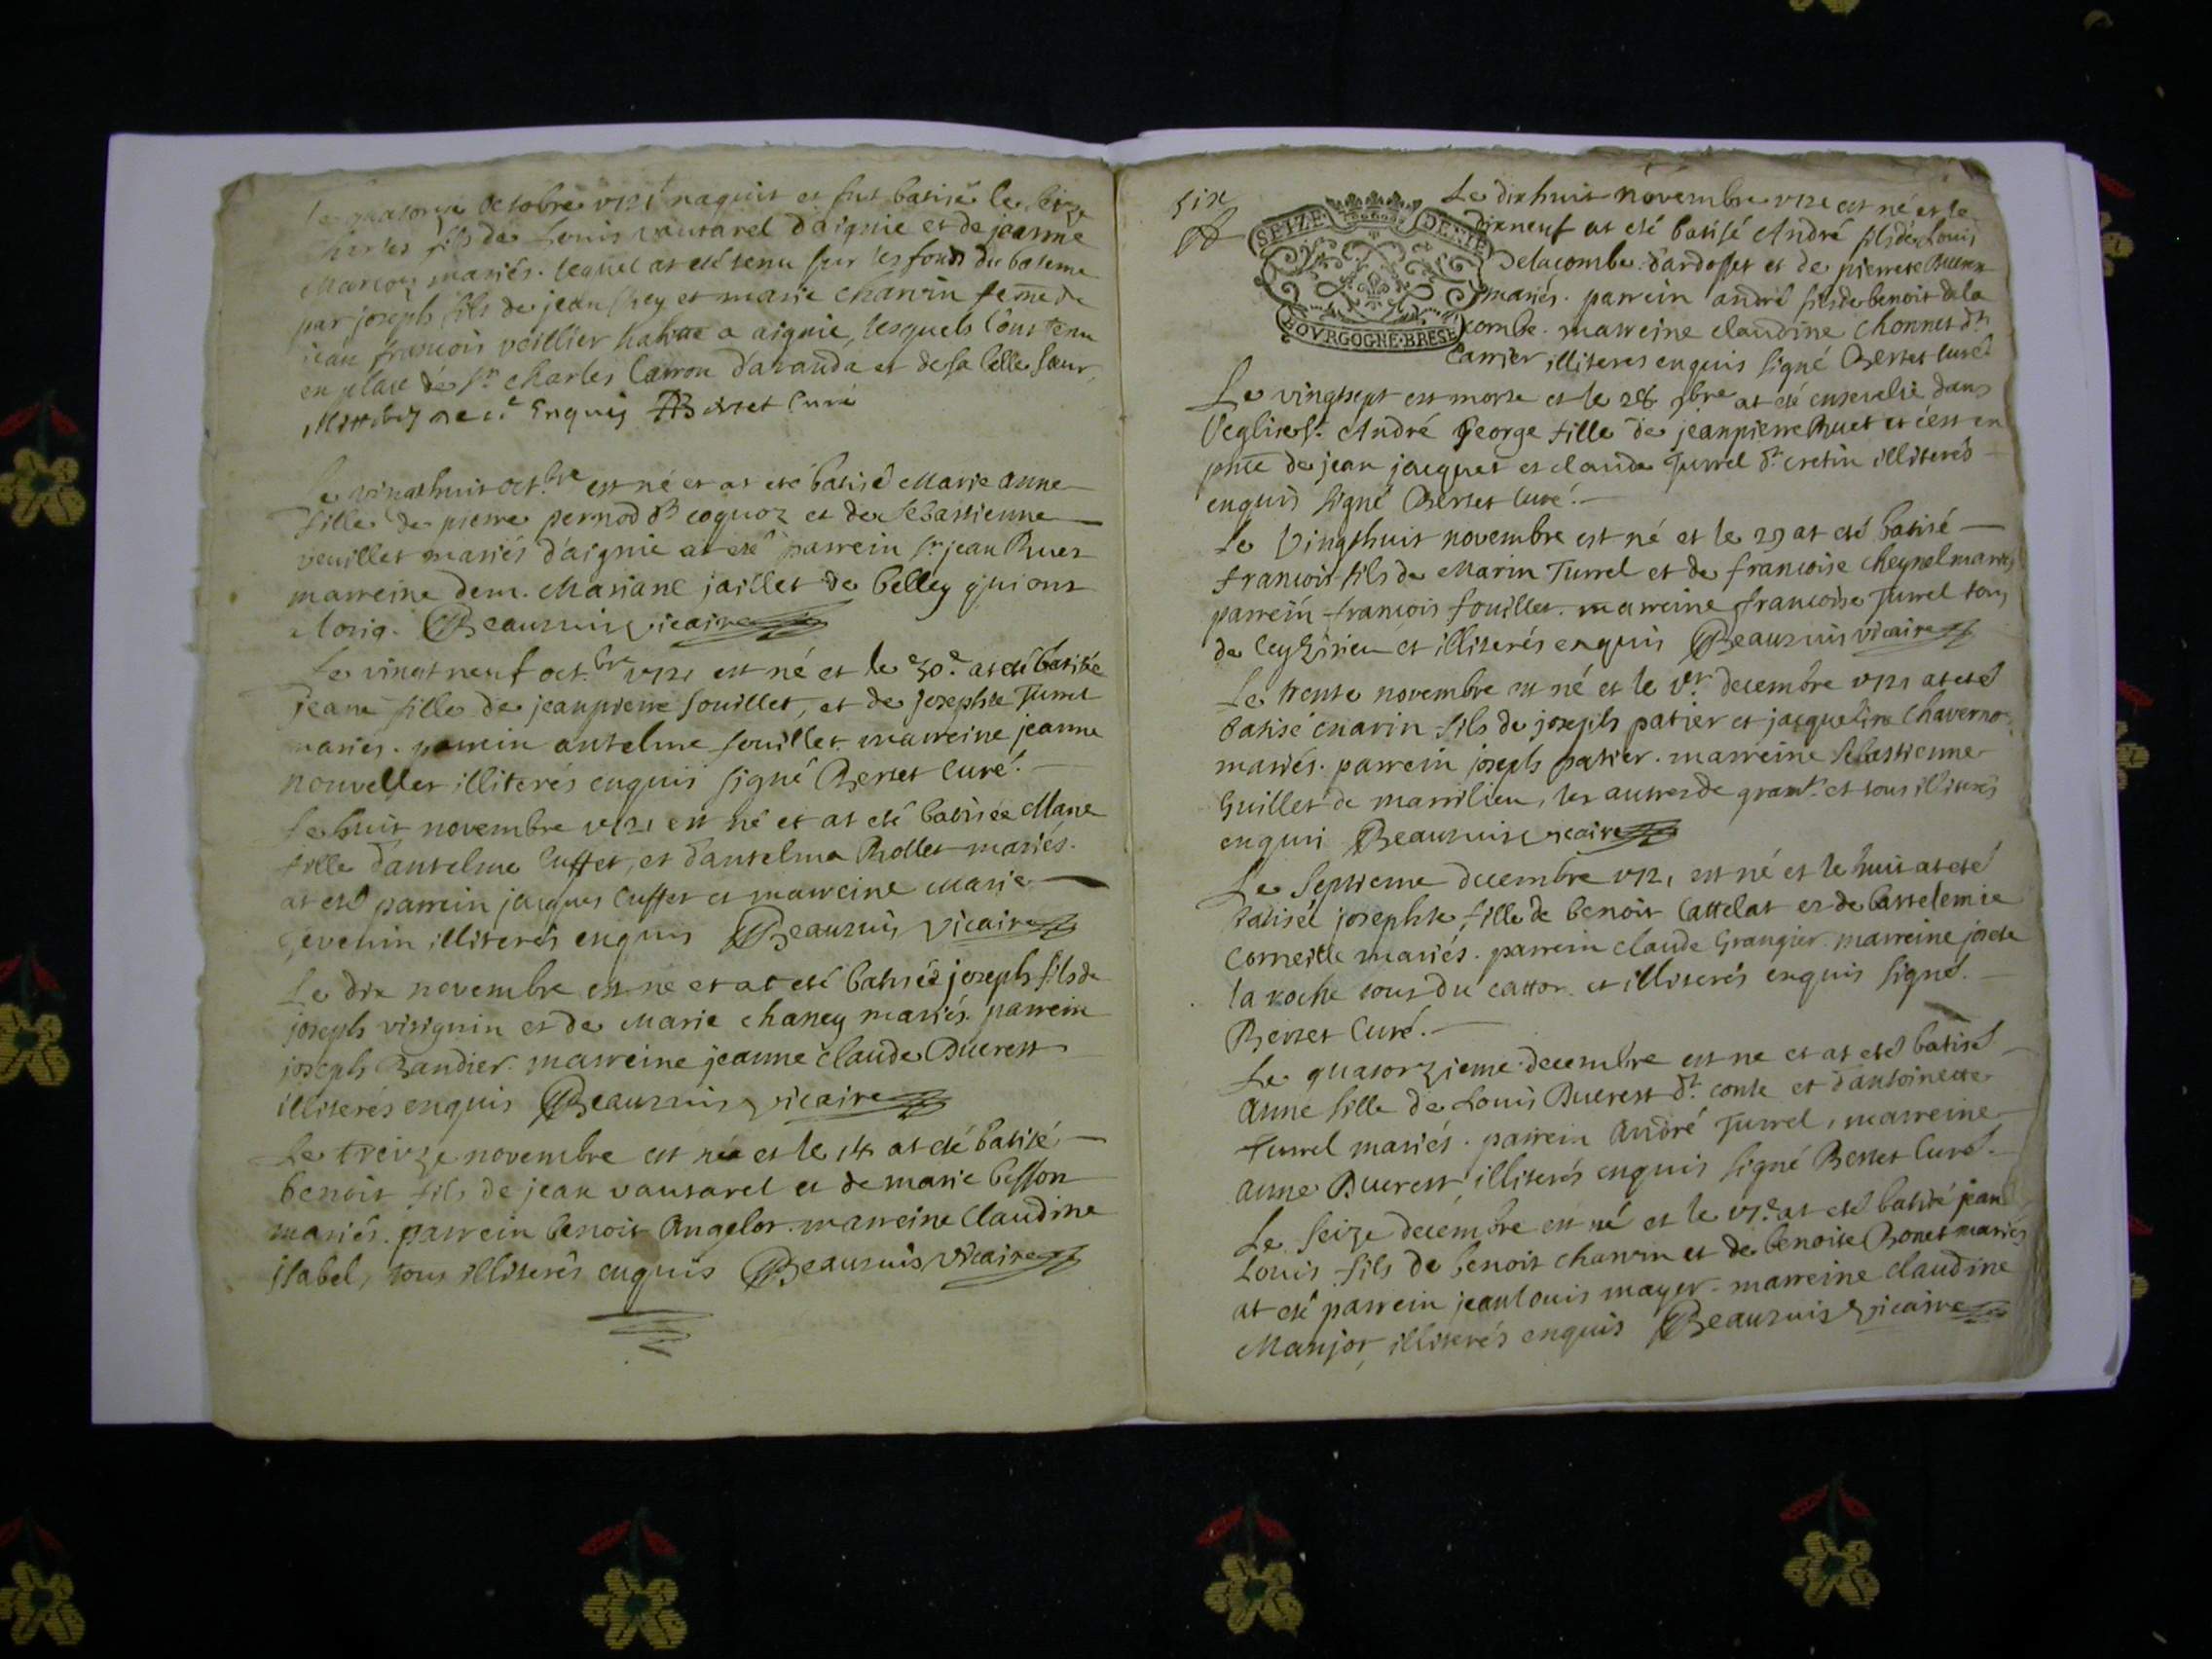 Le quatorze octobre 1721 naquit et fut batisé le seize
charles fils de Louis vautarel d'aignie et de jeanne
mariés. lequel at eté tenu sur les fonds du bateme
par joseph fils de jean frey et marie charvin femme de
jean françois veillier habitte a aignie, lesquels l'ont tenu
en place de Sr charles Carron d'aranda et de sa belle sœur,
enquis Berset Curé
Le vingthuit octbre est né et at eté batisé Marie anne
fille de pierre pernod dt coquoz et de Sebastienne
veuillet mariés d'aignie at eté parrein Sr jean Ruet
marreine dem. Mariane jaillet de belley qui ont
signé. Beauruis vicaire
Le vingt neuf octbre 1721 est né et le 30e at eté batisée
jeane fille de jeanpierre fouillet, et de josephte Turrel
mariés. parrein antelme fouillet marreine jeanne
nouvellet illiterés enquis signé Berset Curé.
Le huit novembre 1721 est né et at eté batisée Marie
fille d'antelme Cuffet, et d'antelma Rollet mariés.
at eté parrein jacques Cuffet et marreine Marie
Gevenin illiterés enquis Beauruis vicaire
Le dix novembre est né et at eté batiséé joseph fils de
joseph virignin et de Marie chaney mariés. parrein
joseph Bandier. marreine jeanne claude Bueret
illiterés enquis Beauruis vicaire
Le treize novembre est né et le 14 at eté batisé
benoit fils de jean vautarel et de marie besson
mariés. parrein benoit Angelot. marreine Claudine
Isabel, tous illiterés enquis Beauruis Vicaire
six
SEIZE DENIE
BOVRGOGNE·BRESE
Le dixhuit novembre 1721 est né et le
dixneuf at eté batisé André fils de Louis
Delacombe d'ardosset et de pierrete
mariés. parrein andré fils de benoit de la
combe. marreine claudine Chonnet dt
Carrier illiteres enquis signé Berset Curé
Le vingtsept est morte et le 28 9bre at eté ensevelie dans
l'eglise St André george fille de jeanpierre Ruet et c'est en
pnce de jean jacquet et claude Turrel dt cretin illiterés
enquis signé Berset Curé.
Le Vingthuit novembre est né et le 29 at eté batisé
françois fils de Marin Turrel et de françoise Cheynel mariés
parrein françois fouillet. marreine françoise Turrel tous
de Ceyzirieu et illiterés enquis Beauruis vicaire
Le trente novembre est né et le 1er decembre 1721 at eté
batisé marin fils de joseph patier et jacqueline Chaverno
mariés. parrein joseph patier. marreine Sebastienne
Guillet de marrilieu, les autres de grant. et tous illiterés
enquis Beauruis vicaire
Le Septieme decembre 1721 est né et le huit at eté
batisée josephte, fille de benoit Cattelat et de bartelemie
Corneille mariés. parrein claude Grangier marreine josete
la roche tous du cattor et illiterés enquis signé.
Berset Curé.
Le quatorzieme decembre est ne et at eté batisé
anne fille de Louis Bueret dt conte et d'antoinette
Turrel mariés. parrein André Turrel, marreine
anne Bueret illiterés enquis signé Berset Curé.
Le Seize decembre est né et le 17e at eté batisé jean
Louis fils de benoit charvin et de benoite Bonet mariés
at eté parrein jeanlouis mayer. marreine claudine
Manjot, illiterés enquis Beauruis vicaire